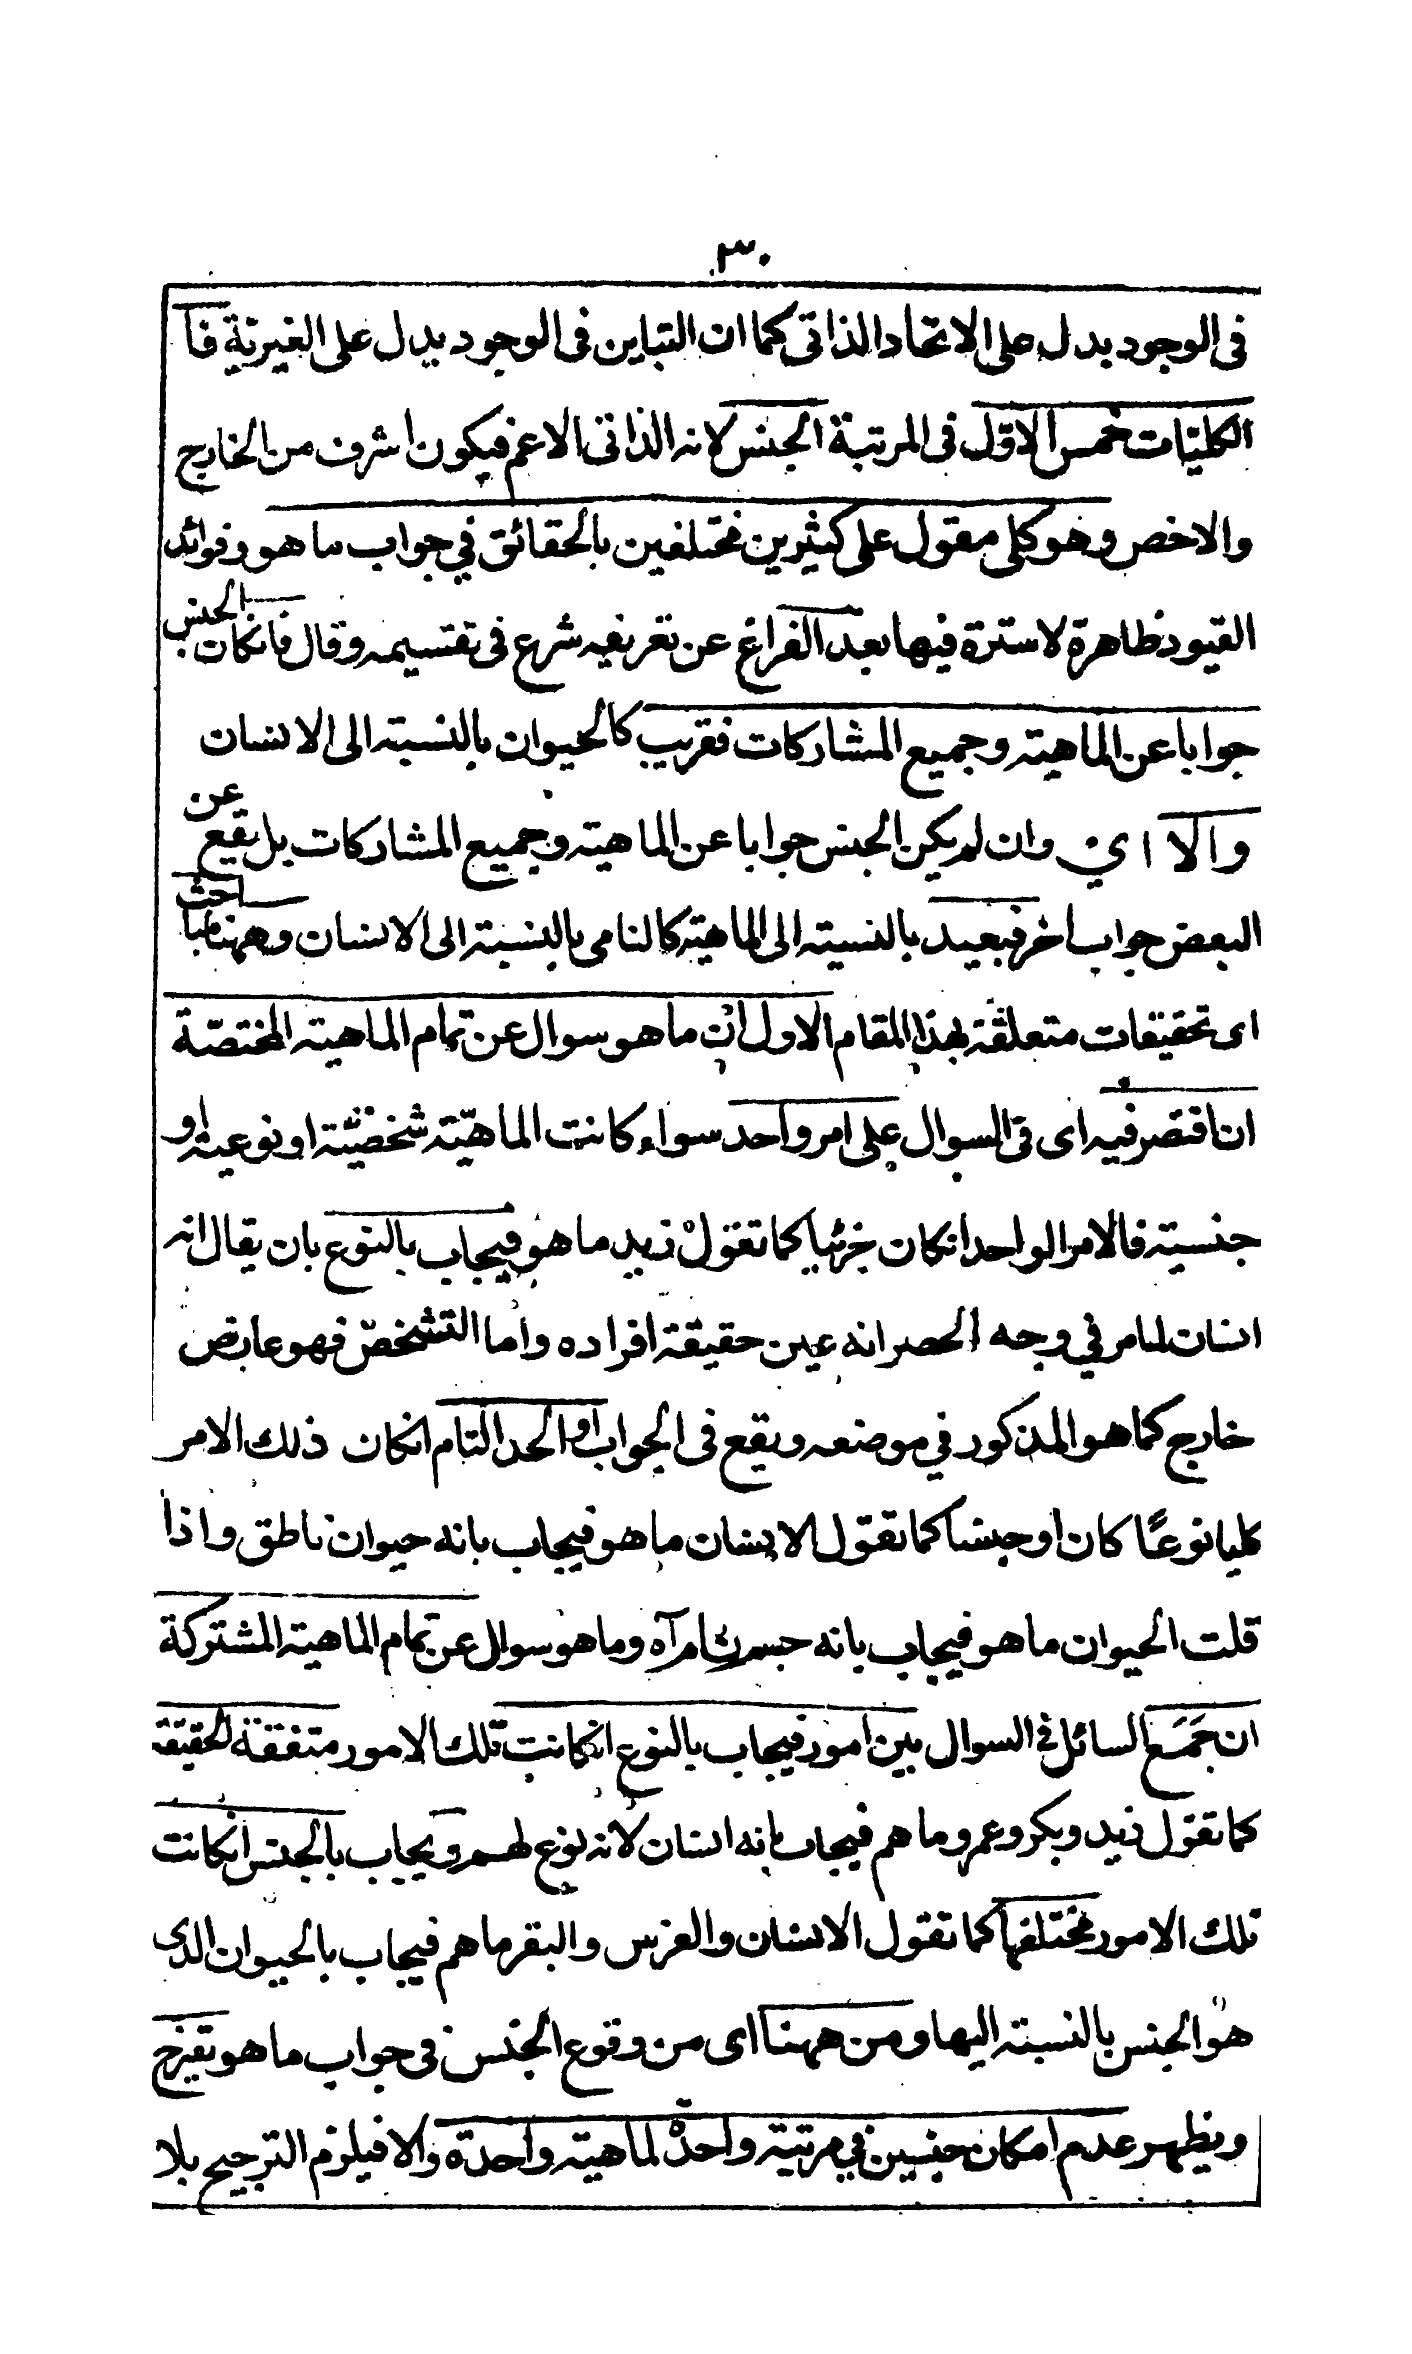 ٣٠
فى الوجود يدل على الاتحاد الذاتى كما ان التباين فى الوجود يدل على الغيرية فا
الكليّات خمس الاوّل فى المرتبة الجنس لانه الذاتى الاعم فيكون اشرف من الخارج
والاخص وهو كلى مقول على كثيرين مختلفين بالحقائق في جواب ما هو وفوائد
القيود ظاهرة لا سترة فيها بعد الفراغ عن تعريفه شرع فى تقسيمه وقال فانكان الجنس
جوابا عن الماهية وجميع المشاركات فقريب كالحيوان بالنسبة الى الانسان
والا اي وان لم يكن الجنس جوابا عن الماهية وجميع المشاركات بل يقع عن
البعض جواب اخر فبعيد بالنسبة الى الماهية كالنامى بالنسبة الى الانسان وههنا مباحث
اى تحقيقات متعلقة بهذا المقام الاول ان ما هو سوال عن تمام الماهية المختصّة
ان اقتصر فيه اى فى السوال على امر واحد سواء كانت الماهيّة شخصيّة او نوعية او
جنسية فالامر الواحد انكان جزئيا كما تقول زيد ما هو فيجاب بالنوع بان يقال انه
انسان لما مر في وجه الحصر انه عين حقيقة افراده واما التشخصّ فهو عارض
خارج كما هو المذكور في موضعه ويقع فى الجواب او الحد التام انكان ذلك الامر
كليا نوعًا كان او جنسا كما تقول الانسان ما هو فيجاب بانه حيوان ناطق واذا
قلت الحيوان ما هو فيجاب بانه جسم نام آه وما هو سوال عن تمام الماهية المشتركة
ان جَمَعَ السائل في السوال بين امور فيجاب بالنوع انكانت تلك الامور متفقة الحقيقة
كما تقول زيد وبكر وعمرو ما هم فيجاب بانه انسان لانه نوع لهم ويجاب بالجنس انكانت
تلك الامور مختلفها كما تقول الانسان والفرس والبقر ما هم فيجاب بالحيوان الذى
هو الجنس بالنسبة اليها ومن ههنا اى من وقوع الجنس فى جواب ما هو يتفرّع
ويظهر عدم امكان جنسين في مرتبة واحدة لماهية واحدة والا فيلزم الترجيح بلا